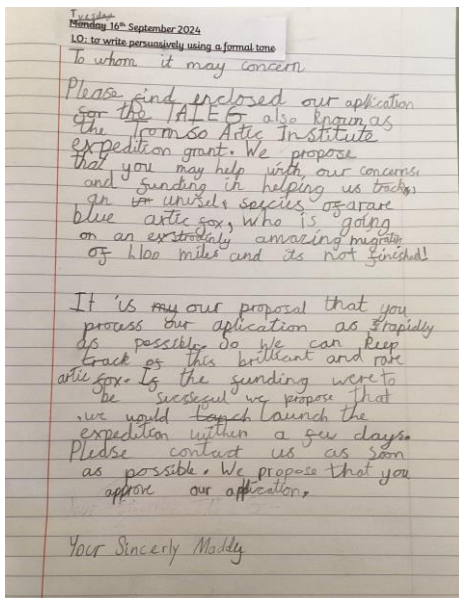 Tuesday
Monday 16th September 2024
LO: to write persuasively using a formal tone
To whom it may concern
Please find enclosed our application
for the TAIEG also known as
the Tromso Artic Institute
expedition grant. We propose
that you may help with our concerns
and funding in helping us track
an unusel species of a rare
blue artic fox, who is going
on an amazing migration
of 4100 miles and its not finished!
It is my our proposal that you
process our aplication as rapidly
as possible. So we can keep
track of this brilliant and rare
artic fox. If the funding were to
be sucsessful we propose that
we would launch the
expedition within a few days.
Please contact us as soon
as possible. We propose that you
approve our application.
Your Sincerly Maddy